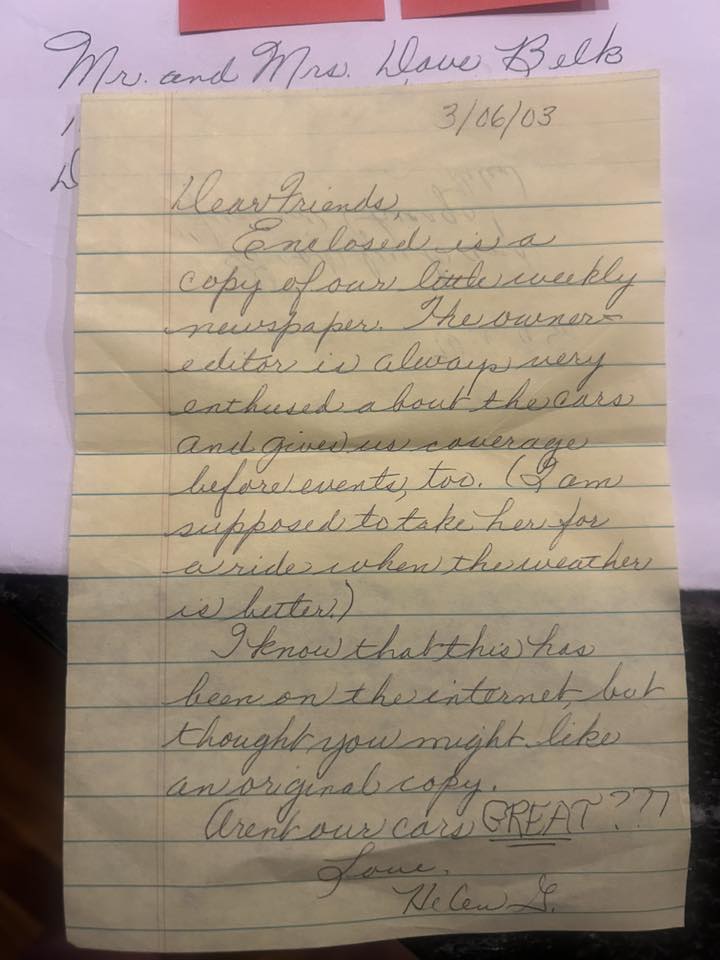 Mr. and Mrs. Dave Belk
3/06/03
Dear Friends,
Enclosed is a
copy of our little weekly
newspaper. The owner-
editor is always very
enthused about the cars
and gives us coverage
before events, too. (I am
supposed to take her for
a ride when the weather
is better.)
I know that this has
been on the internet, but
thought you might like
an original copy.
Arent our cars GREAT???
Love,
Helen G.